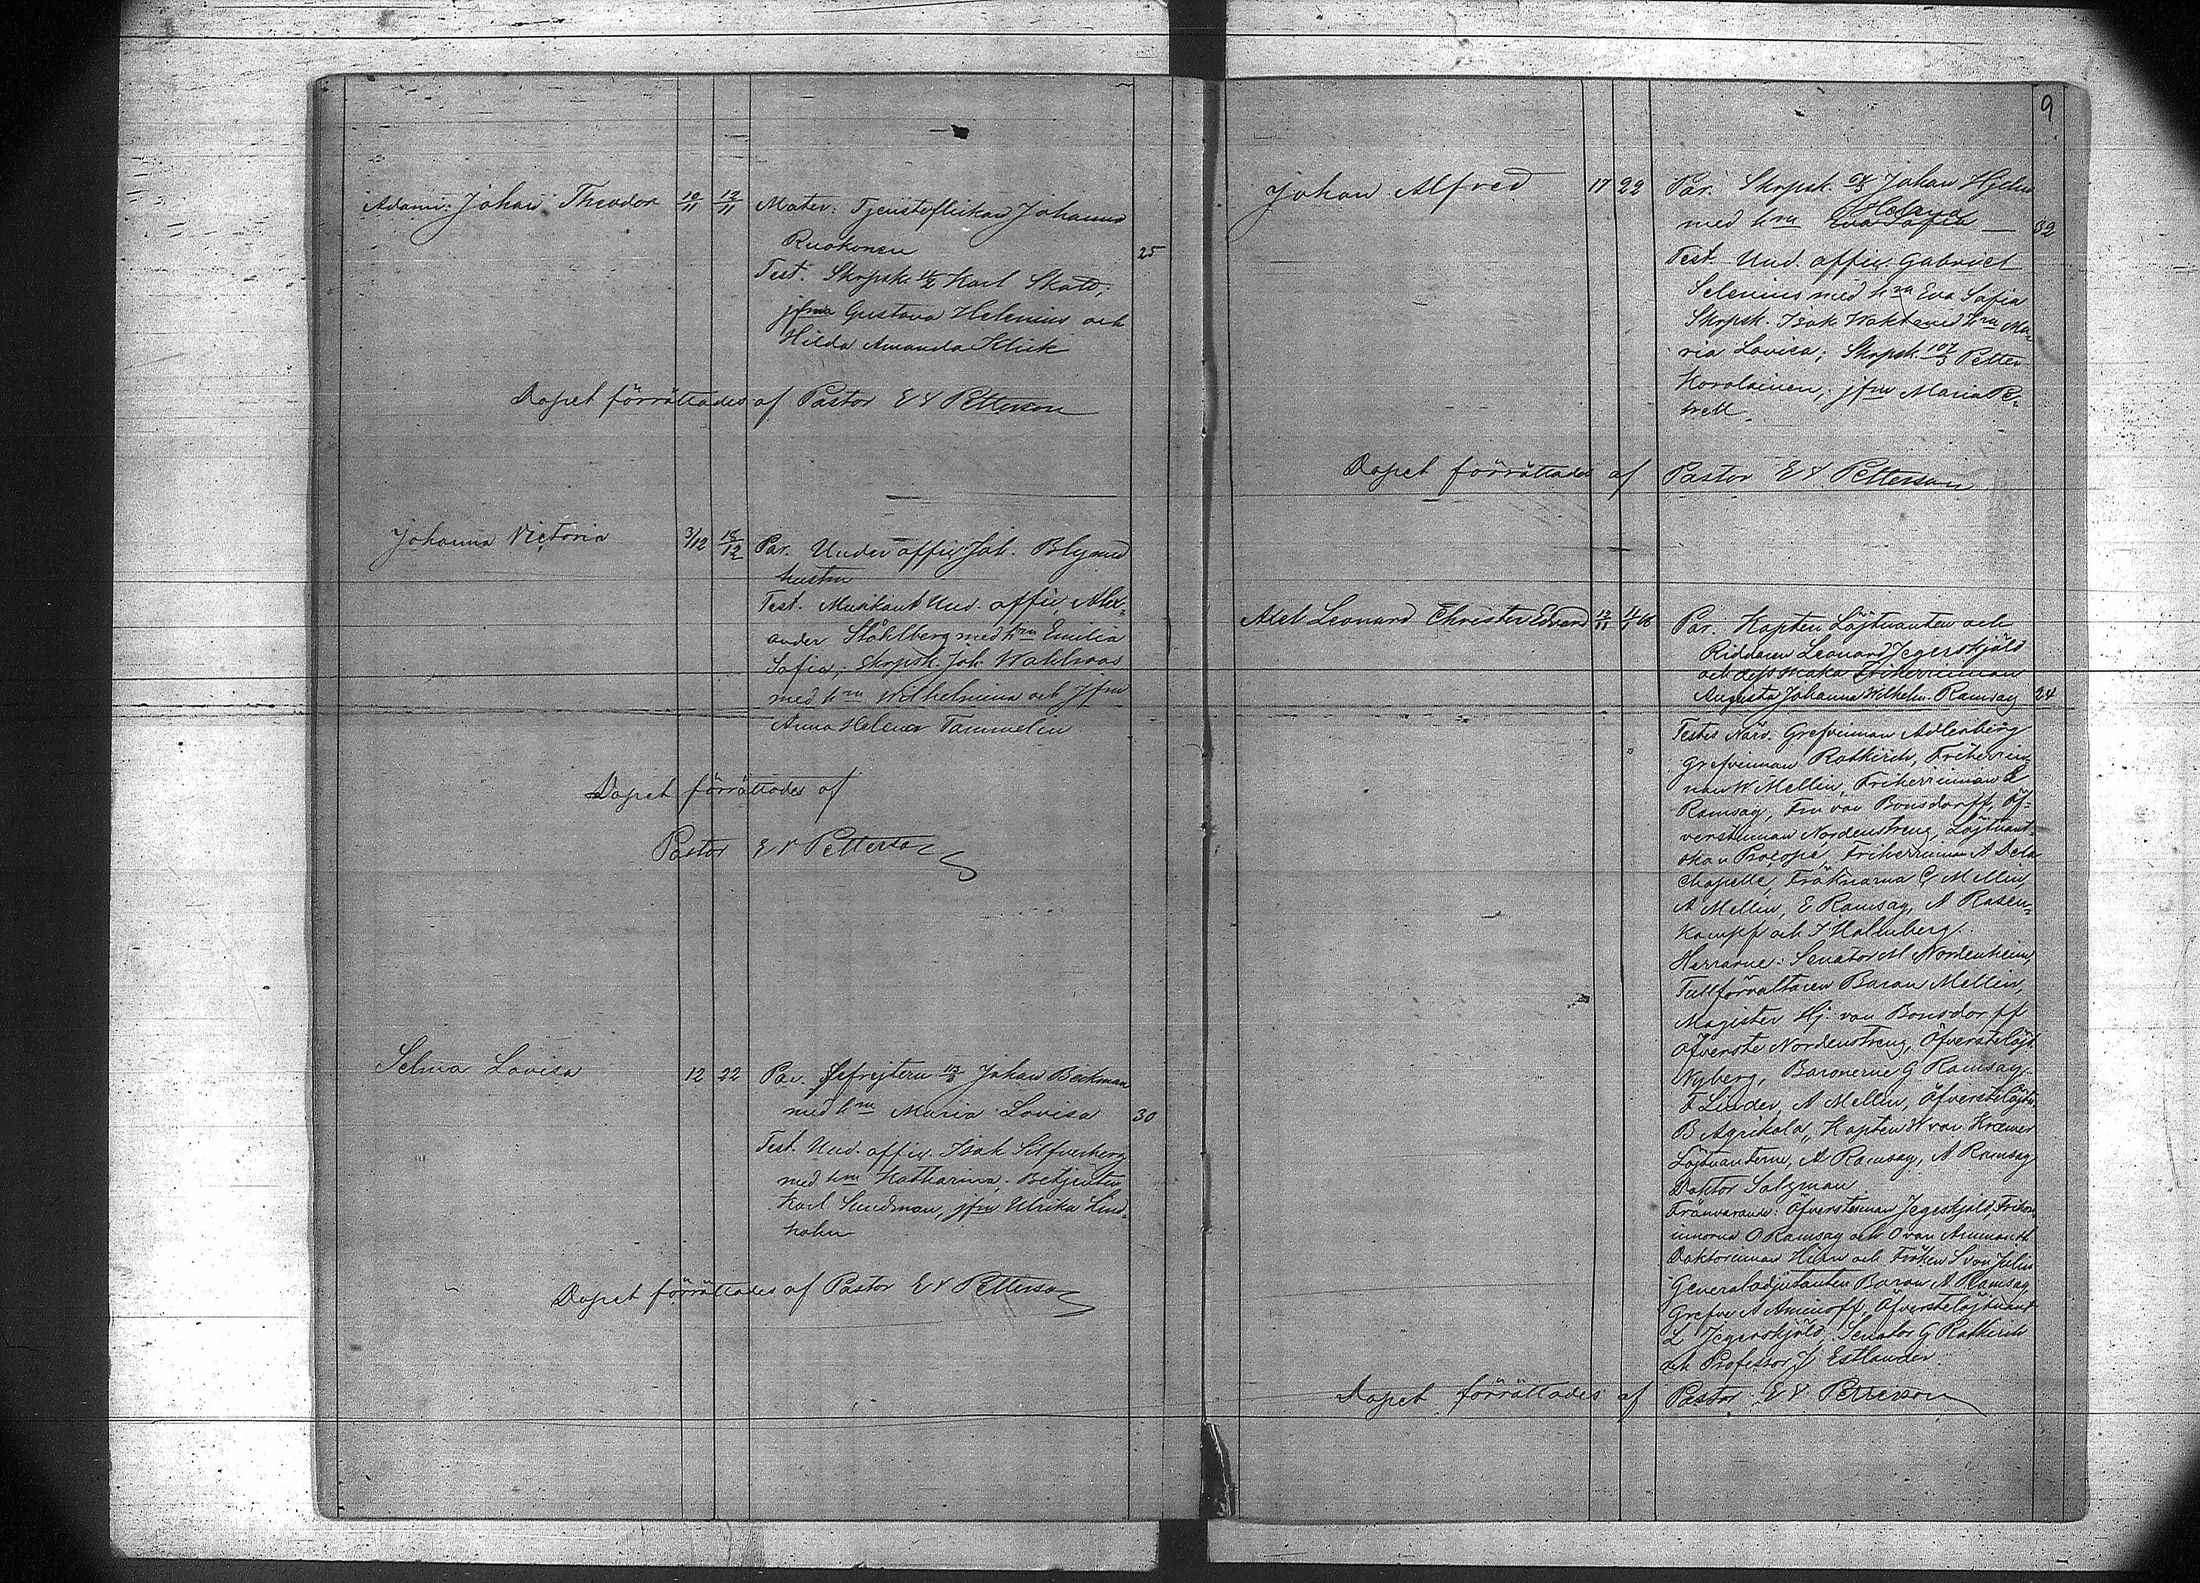 Adami. Johan Theodor 10/11 12/11 Mater: Tjensteflickan Johanna
Ruokonen 25
Test. Skrpsk. Karl Sköld;
jfrna Gustava Helenius och
Hilda Amanda Klick
Dopet förrättades af Pastor E V Petterson
Johanna Victoria 3/12 18/12 Par. Under offic. Joh. Bly med
hustru
Test. Musikant Und. offic. Alex-
ander Ståhlberg med hru Emilia
Sofia; Skrpsk. Joh. Wahlroos
med hru Wilhelmina och Jfru
Anna Helena Tammelin
Dopet förrättades af
Pastor E V Petterson
Selma Lovisa 12 22 Par. Gefrejtern Johan Beckman
med hru Maria Lovisa 30
Test. Und. offic. Isak Silfverberg
med hru Katharina. Betjenten
Karl Sundman, jfru Ulrika Lind-
holm
Dopet förrättades af Pastor E V Petterson
9
Johan Alfred 17 22 Par. Skrpsk. Johan Hjelm
Helena
med hru Eva Sofia — 32
Test. Und. offic. Gabriel
Selenius med hru Eva Sofia
Skrpsk. Isak Wakt med hru Ma-
ria Lovisa; Skrpsk. 107/3 Petter
Koralainen; jfru Maria Pe-
trell
Dopet förrättades af Pastor E V. Petterson
Axel Leonard Christer Edvard 12/11 11/1 66 Par. Kapten Löjtnanten och
Riddaren Leonard Jegerskjöld
och dess Maka Friherrinnan
Augusta Johanna Wilhelm. Ramsay 24
Testes Närv. Grefvinnan Adlerberg
Grefvinnan Rotkirch, Friherrin-
nan W Mellin, Friherrinnan
Ramsay, Fru von Bonsdorff, Öf-
verstinnan Nordenstreng, Löjtnant-
skan Procopé, Friherrinnan A Dela
Chapelle, Fröknarna C Mellin,
A Mellin, E Ramsay, A Rosen-
kampf och I Holmberg.
Herrarne: Senator M Nordenheim,
Tullförvaltaren Baron Mellin,
Magister Hj. von Bonsdorff
Öfverste Nordenstreng, Öfverstelöjt.
Nyberg, Baronerne G Ramsay,
F Linder, A Mellin, Öfverstelöjtn.
B Agrikola, Kapten W von Kræmer
Löjtnanterne, A Ramsay, A Ramsay
Doktor Salzman
Frånvarande: Öfverstinnan Jegerskjöld, Friher-
innorna O Ramsay och O von Ammondt
Doktorinnan Hisin och Fröken S von Julin
Generaladjutanten Baron A Ramsay,
Grefve A Aminoff, Öfverstelöjtnant
L Jegerskjöld, Senator G Rotkirch
och Professor J Estlander.
Dopet förrättades af Pastor E V Petterson